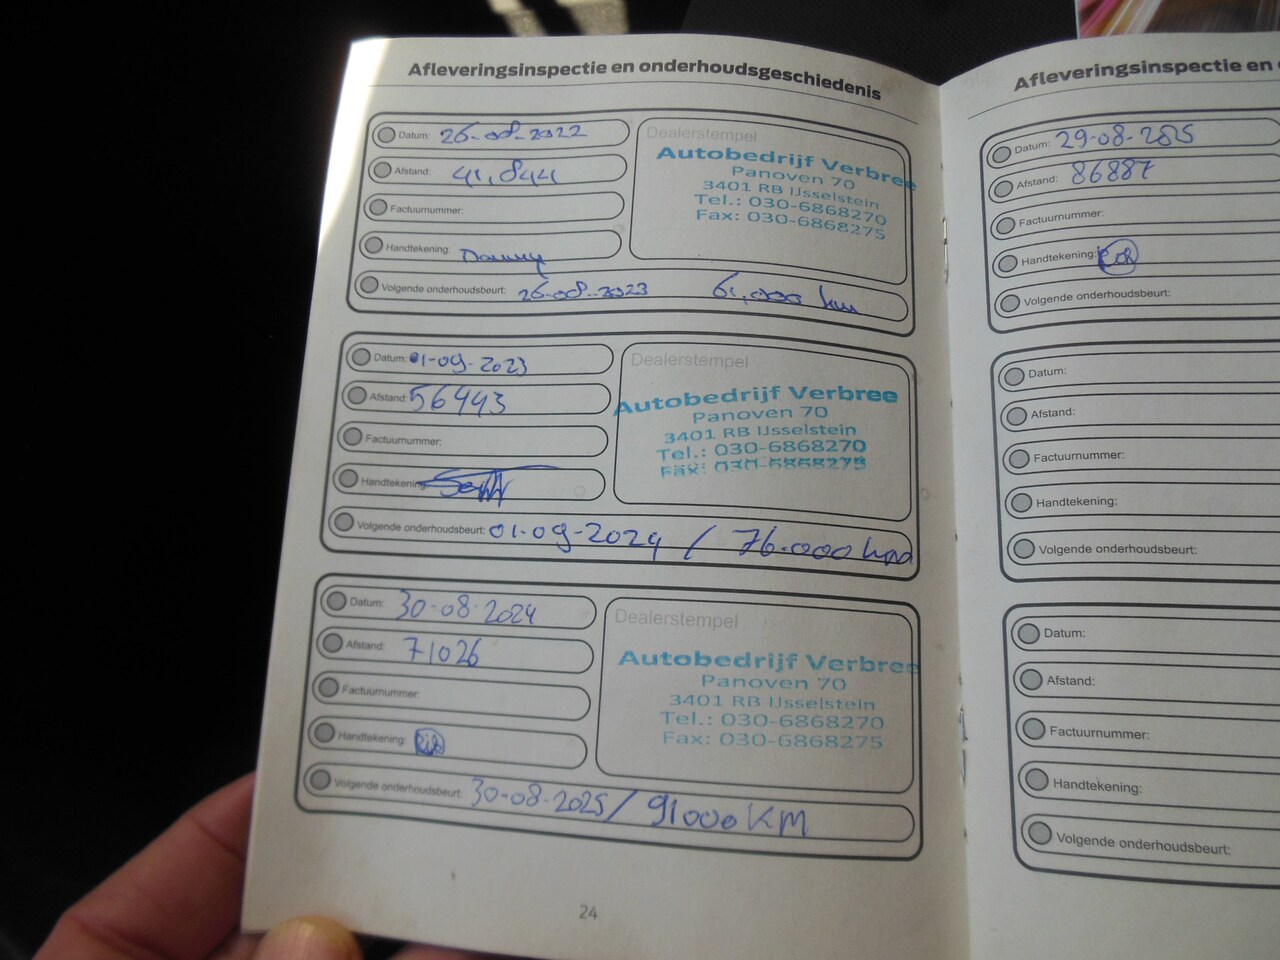 Afleveringsinspectie en onderhoudsgeschiedenis
Datum: 26-08-2022
Afstand: 41,844
Factuurnummer:
Handtekening: Danny
Volgende onderhoudsbeurt: 26-08-2023 61,000 km
Dealerstempel
Autobedrijf Verbree
Panoven 70
3401 RB IJsselstein
Tel.: 030-6868270
Fax: 030-6868275
Datum: 01-09-2023
Afstand: 56443
Factuurnummer:
Handtekening:
Volgende onderhoudsbeurt: 01-09-2024 / 76.000 km
Dealerstempel
Autobedrijf Verbree
Panoven 70
3401 RB IJsselstein
Tel.: 030-6868270
Fax: 030-6868275
Datum: 30-08-2024
Afstand: 71026
Factuurnummer:
Handtekening:
Volgende onderhoudsbeurt: 30-08-2025 / 91000 KM
Dealerstempel
Autobedrijf Verbree
Panoven 70
3401 RB IJsselstein
Tel.: 030-6868270
Fax: 030-6868275
24
Afleveringsinspectie en
Datum: 29-08-2025
Afstand: 86887
Factuurnummer:
Handtekening:
Volgende onderhoudsbeurt:
Datum:
Afstand:
Factuurnummer:
Handtekening:
Volgende onderhoudsbeurt:
Datum:
Afstand:
Factuurnummer:
Handtekening:
Volgende onderhoudsbeurt: